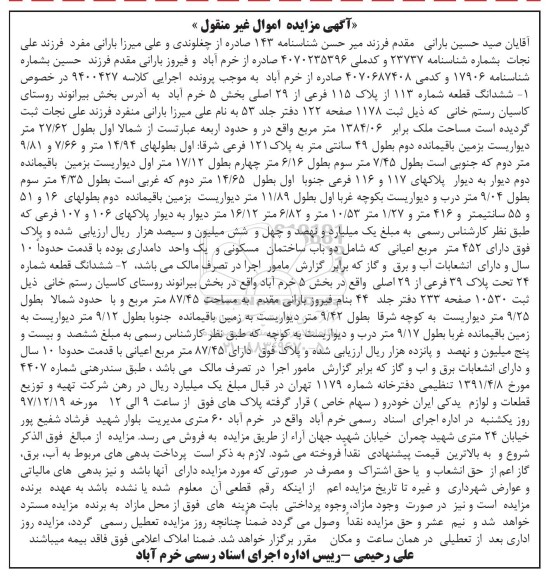 «آگهی مزایده اموال غیر منقول »
آقایان صید حسین بارانی مقدم فرزند میر حسن شناسنامه ۱۴۳ صادره از چغلوندی و علی میرزا بارانی مفرد فرزند علی
نجات بشماره شناسنامه ۲۳۷۳۷ و کدملی ۴۰۷۰۲۳۵۳۹۶ صادره از خرم آباد و فیروز بارانی مقدم فرزند حسین بشماره
شناسنامه ۱۷۹۰۶ و کدمی ۴۰۷۰۶۸۷۴۰۸ صادره از خرم آباد به موجب پرونده اجرایی کلاسه ۹۴۰۰۴۲۷ در خصوص
۱- ششدانگ قطعه شماره ۱۱۳ از پلاک ۱۱۵ فرعی از ۲۹ اصلی بخش ۵ خرم آباد به آدرس بخش بیرانوند روستای
کاسیان رستم خانی که ذیل ثبت ۱۱۷۸ صفحه ۱۲۲ دفتر جلد ۵۳ به نام علی میرزا بارانی منفرد فرزند علی نجات ثبت
گردیده است مساحت ملک برابر ۱۳۸۴/۰۶ متر مربع واقع در و حدود اربعه عبارتست از شمالا اول بطول ۲۷/۶۲ متر
دیواریست بزمین باقیمانده دوم بطول ۴۹ سانتی متر به پلاک ۱۲۱ فرعی شرقا: اول بطولهای ۱۴/۹۴ متر و ۷/۶۶ و ۹/۸۱
متر دوم که جنوبی است بطول ۷/۴۵ متر سوم بطول ۶/۱۶ متر چهارم بطول ۱۷/۱۲ متر اول دیواریست بزمین باقیمانده
دوم دیوار به دیوار پلاکهای ۱۱۷ و ۱۱۶ فرعی جنوبا اول بطول ۱۴/۶۵ متر دوم که غربی است بطول ۴/۳۵ متر سوم
بطول ۹/۰۴ متر درب و دیواریست بکوچه غربا اول بطول ۱۱/۸۹ متر دیواریست بزمین باقیمانده دوم بطولهای ۱۶ و ۵۱
و ۵۵ سانتیمتر و ۴۱۶ متر و ۱/۲۷ متر ۱۰/۵۳ متر و ۶/۸۲ متر ۱۶/۱۲ متر دیوار به دیوار پلاکهای ۱۰۶ و ۱۰۷ فرعی که
طبق نظر کارشناس رسمی به مبلغ یک میلیارد و نهصد و چهل و شش میلیون و سیصد هزار ریال ارزیابی شده و پلاک
فوق دارای ۴۵۲ متر مربع اعیانی که شامل دو باب ساختمان مسکونی و یک واحد دامداری بوده با قدمت حدودا ۱۰
سال و دارای انشعابات آب و برق و گاز که برابر گزارش مامور اجرا در تصرف مالک می باشد، ۲- ششدانگ قطعه شماره
۲۴ تحت پلاک ۳۹ فرعی از ۲۹ اصلی واقع در بخش ۵ خرم آباد واقع در بخش بیرانوند روستای کاسیان رستم خانی ذیل
ثبت ۱۰۵۳۰ صفحه ۲۳۳ دفتر جلد ۴۴ بنام فیروز بارانی مقدم به مساحت ۸۷/۴۵ متر مربع و با حدود شمالا بطول
۹/۲۵ متر دیواریست به کوچه شرقا بطول ۹/۴۲ متر دیواریست به زمین باقیمانده جنوبا بطول ۹/۱۲ متر دیواریست به
زمین باقیمانده غربا بطول ۹/۱۷ متر درب و دیواریست به کوچه که طبق نظر کارشناس رسمی به مبلغ ششصد و بیست و
پنج میلیون و نهصد و پانزده هزار ریال ارزیابی شده و پلاک فوق دارای ۸۷/۴۵ متر مربع اعیانی با قدمت حدودا ۱۰ سال
و دارای انشعابات برق و اب و گاز که برابر گزارش مامور اجرا در تصرف مالک می باشد ، طبق سندرهنی شماره ۴۴۰۷
مورخ ۱۳۹۱/۴/۸ تنظیمی دفترخانه شماره ۱۱۷۹ تهران در قبال مبلغ یک میلیارد ریال در رهن شرکت تهیه و توزیع
قطعات و لوازم یدکی ایران خودرو ( سهام خاص ) قرار گرفته پلاک های فوق از ساعت ۹ الی ۱۲ مورخه ۹۷/۱۲/۱۹
روز یکشنبه در اداره اجرای اسناد رسمی خرم آباد واقع در خرم آباد ۶۰ متری مدیریت بلوار شهید فرشاد شفیع پور
خیابان ۲۴ متری شهید چمران خیابان شهید جهان آراء از طریق مزایده به فروش می رسد. مزایده از مبالغ فوق الذکر
شروع و به بالاترین قیمت پیشنهادی نقدا فروخته می شود. لازم به ذکر است پرداخت بدهی های مربوط به آب، برق،
گاز اعم از حق انشعاب و یا حق اشتراک و مصرف در صورتی که مورد مزایده دارای آنها باشد و نیز بدهی های مالیاتی
و عوارض شهرداری و غیره تا تاریخ مزایده اعم از اینکه رقم قطعی آن معلوم شده یا نشده باشد به عهده برنده
مزایده است و نیز در صورت وجود مازاد، وجوه پرداختی بابت هزینه های فوق از محل مازاد به برنده مزایده مسترد
خواهد شد و نیم عشر و حق مزایده نقداً وصول می گردد ضمناً چنانچه روز مزایده تعطیل رسمی گردد، مزایده روز
اداری بعد از تعطیلی در همان ساعت و مکان مقرر برگزار خواهد شد. ضمنا املاک اعلامی فوق فاقد بیمه میباشند
علی رحیمی –رییس اداره اجرای اسناد رسمی خرم آباد